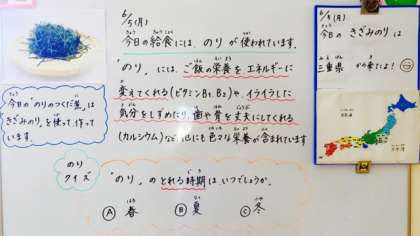 6/5(月)
きょう きゅうしょく つか
今日の給食には、のりが使われています。
『のり』には、ご飯の栄養をエネルギーに
変えてくれる(ビタミンB1、B2)や、イライラした
気分をしずめたり、歯や骨を丈夫にしてくれる
(カルシウム)など他にも色々な栄養が含まれています
今日の"のりのつくだ煮"は、
きざみのり、を使って、作って
います。
のり
クイズ
『のり』のとれる時期はいつでしょうか。
Ⓐ 春 Ⓑ 夏 Ⓒ 冬
6/5(月)
今日のきざみのりは
三重県から来たよ!